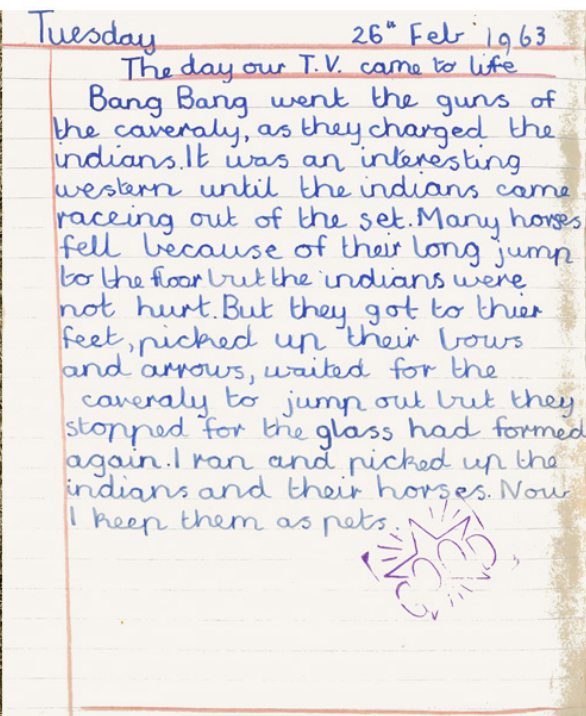 Tuesday 26th Feb 1963
The day our T.V. came to life
Bang Bang went the guns of
the caveraly, as they charged the
indians. It was an interesting
western until the indians came
raceing out of the set. Many horses
fell because of their long jump
to the floor but the indians were
not hurt. But they got to thier
feet, picked up their bows
and arrows, waited for the
caveraly to jump out but they
stopped for the glass had formed
again. I ran and picked up the
indians and their horses. Now
I keep them as pets.
GOOD